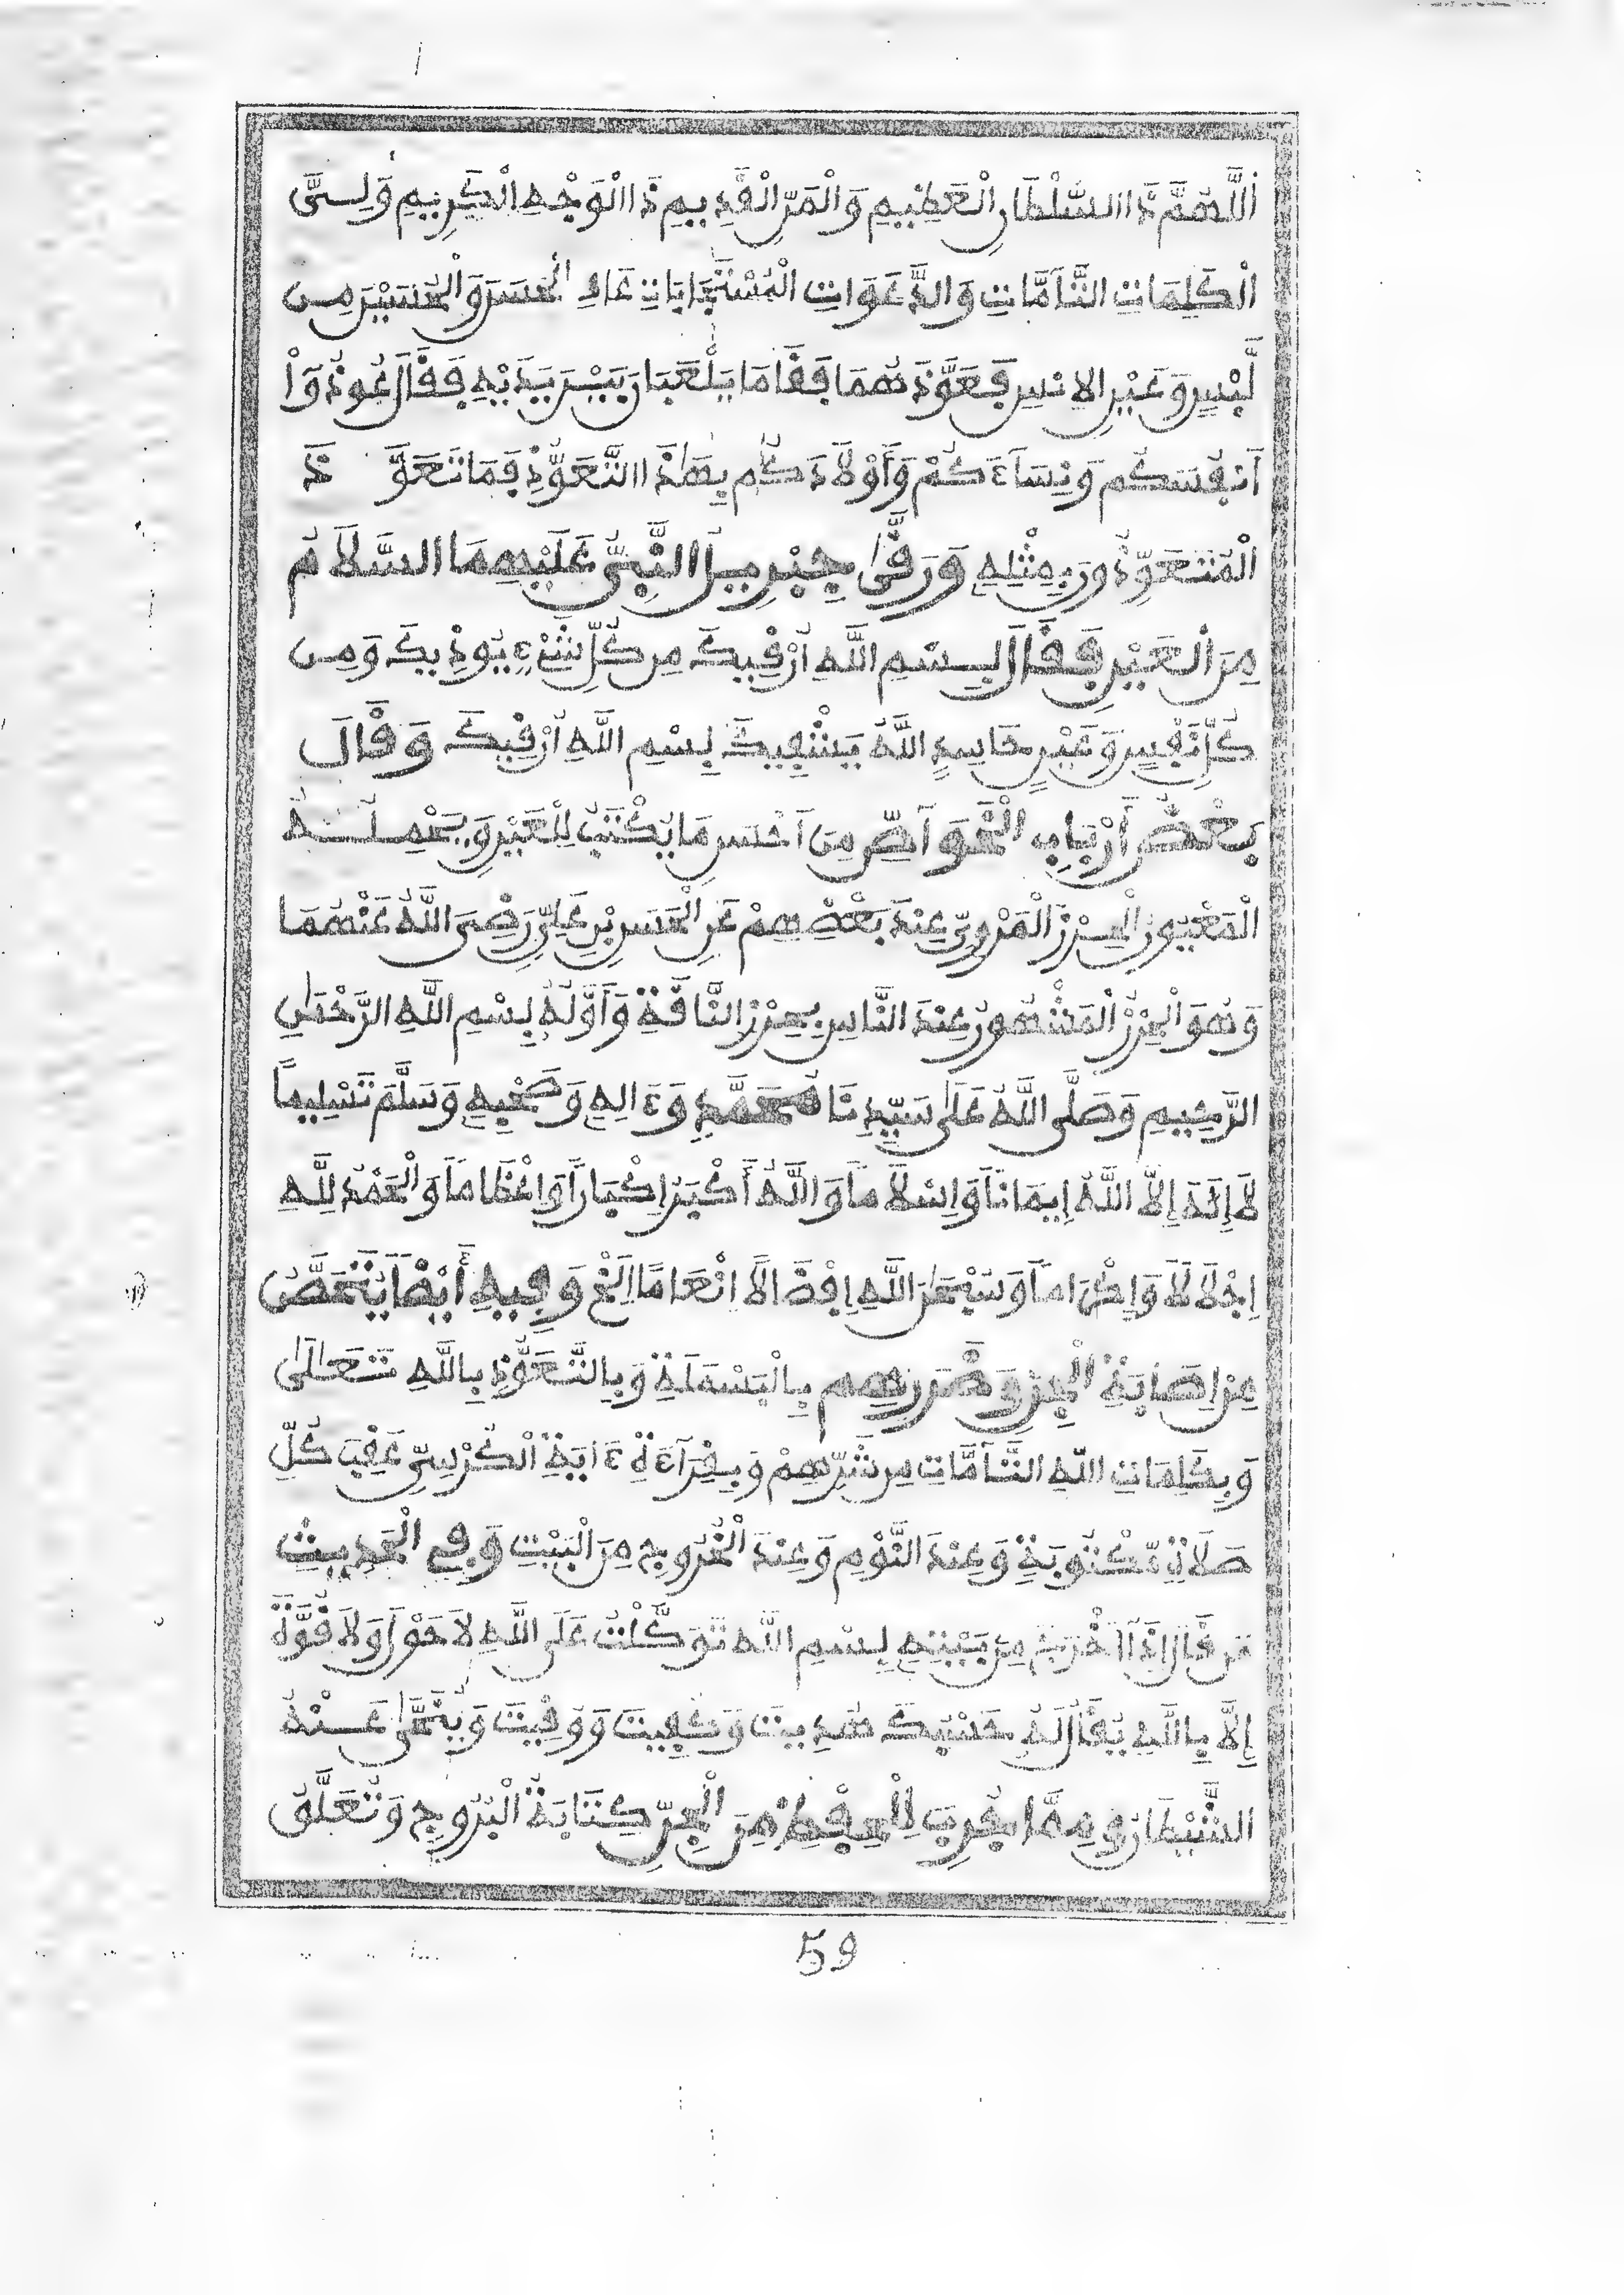 اَللَّهُمَّ ذَا السُّلْطَانِ الْعَظِيمِ وَالْمَنِّ الْقَدِيمِ ذَا الْوَجْهِ الْكَرِيمِ وَلِيَّ
الْكَلِمَاتِ التَّآمَّاتِ وَالدَّعَوَاتِ الْمُسْتَجَابَاتِ عَافِ الْحَسَنَ وَالْحُسَيْنَ مِن
أَنْفُسِ وَعَيْنِ الإِنْسِ فَعَوَّذَهُمَا فَقَامَا يَلْعَبَانِ بَيْنَ يَدَيْهِ فَقَالَ عُوذُواْ
أَنفُسَكُم وَنِسَآءَكُمْ وَأَوْلاَدَكُم بِهَذَا التَّعَوُّذِ فَمَا تَعَوَّذَ
الْمُتَعَوِّذُونَ بِمِثْلِهِ وَرَقَى جِبْرِيلُ النَّبِيَّ عَلَيْهِمَا السَّلاَمُ
مِنَ الْعَيْنِ فَقَالَ بِسْمِ اللَّهِ أَرْقِيكَ مِن كُلِّ شَيْءٍ يُوذِيكَ وَمِن
كُلِّ نَفْسٍ وَعَيْنِ حَاسِدٍ اللَّهُ يَشْفِيكَ بِسْمِ اللَّهِ أَرْقِيكَ وَقَالَ
بَعْضُ أَرْبَابِ الْخَوَآصِّ مِنَ أَحْسَنِ مَا يُكْتَبُ لِلْعَيْنِ وَيَحْمِلُهُ
الْمَعْيُونُ الْحِرْزُ الْمَرْوِيُّ عِنْدَ بَعْضِهِمْ عَنِ الْحَسَنِ بْنِ عَلِيٍّ رَضِيَ اللَّهُ عَنْهُمَا
وَهُوَ الْحِرْزُ الْمَشْهُورُ عِنْدَ النَّاسِ بِحِرْزِ النَّاقَةِ وَأَوَّلُهُ بِسْمِ اللَّهِ الرَّحْمَنِ
الرَّحِيمِ وَصَلَّى اللَّهُ عَلَى سَيِّدِنَا مُحَمَّدٍ وَءَالِهِ وَصَحْبِهِ وَسَلَّمَ تَسْلِيماً
لاَ إِلَهَ إِلاَّ اللَّهُ إِيمَاناً وَإِسْلاَماً وَاللَّهُ أَكْبَرُ إِكْبَاراً وَإِعْظَاماً وَالْحَمْدُ لِلَّهِ
إِجْلاَلاً وَإِكْرَاماً وَسُبْحَانَ اللَّهِ إِفْضَالاً إِنْعَاماً الَخْ وَفِيهِ أَيْضاً يُتَحَصَّنُ
مِنِ اصَابَةِ الْجِنِّ وَضَرَرِهِم بِالْبَسْمَلَةِ وَبِالتَّعَوُّذِ بِاللَّهِ تَعَالَى
وَبِكَلِمَاتِ اللَّهِ التَّآمَّاتِ مِن شَرِّهِمْ وَبِقِرَآءَةِ ءَايَةِ الْكُرْسِيِّ عَقِبَ كُلِّ
صَلاَةٍ مَّكْتُوبَةٍ وَعِنْدَ النَّوْمِ وَعِنْدَ الْخُرُوجِ مِنَ الْبَيْتِ وَفِي الْحَدِيثِ
مَن قَالَ إِذَا خَرَجَ مِن بَيْتِهِ بِسْمِ اللَّهِ تَوَكَّلْتُ عَلَى اللَّهِ لاَ حَوْلَ وَلاَ قُوَّةَ
إِلاَّ بِاللَّهِ يُقَالُ لَهُ حَسْبُكَ هُدِيتَ وَكُفِيتَ وَوُقِيتَ وَيُنَحَّى عَنْهُ
الشَّيْطَانُ وَمِمَّا جُرِّبَ لِلْحِفْظِ مِنَ الْجِنِّ كِتَابَةُ الْبُرُوجِ وَتُعَلَّقُ
59